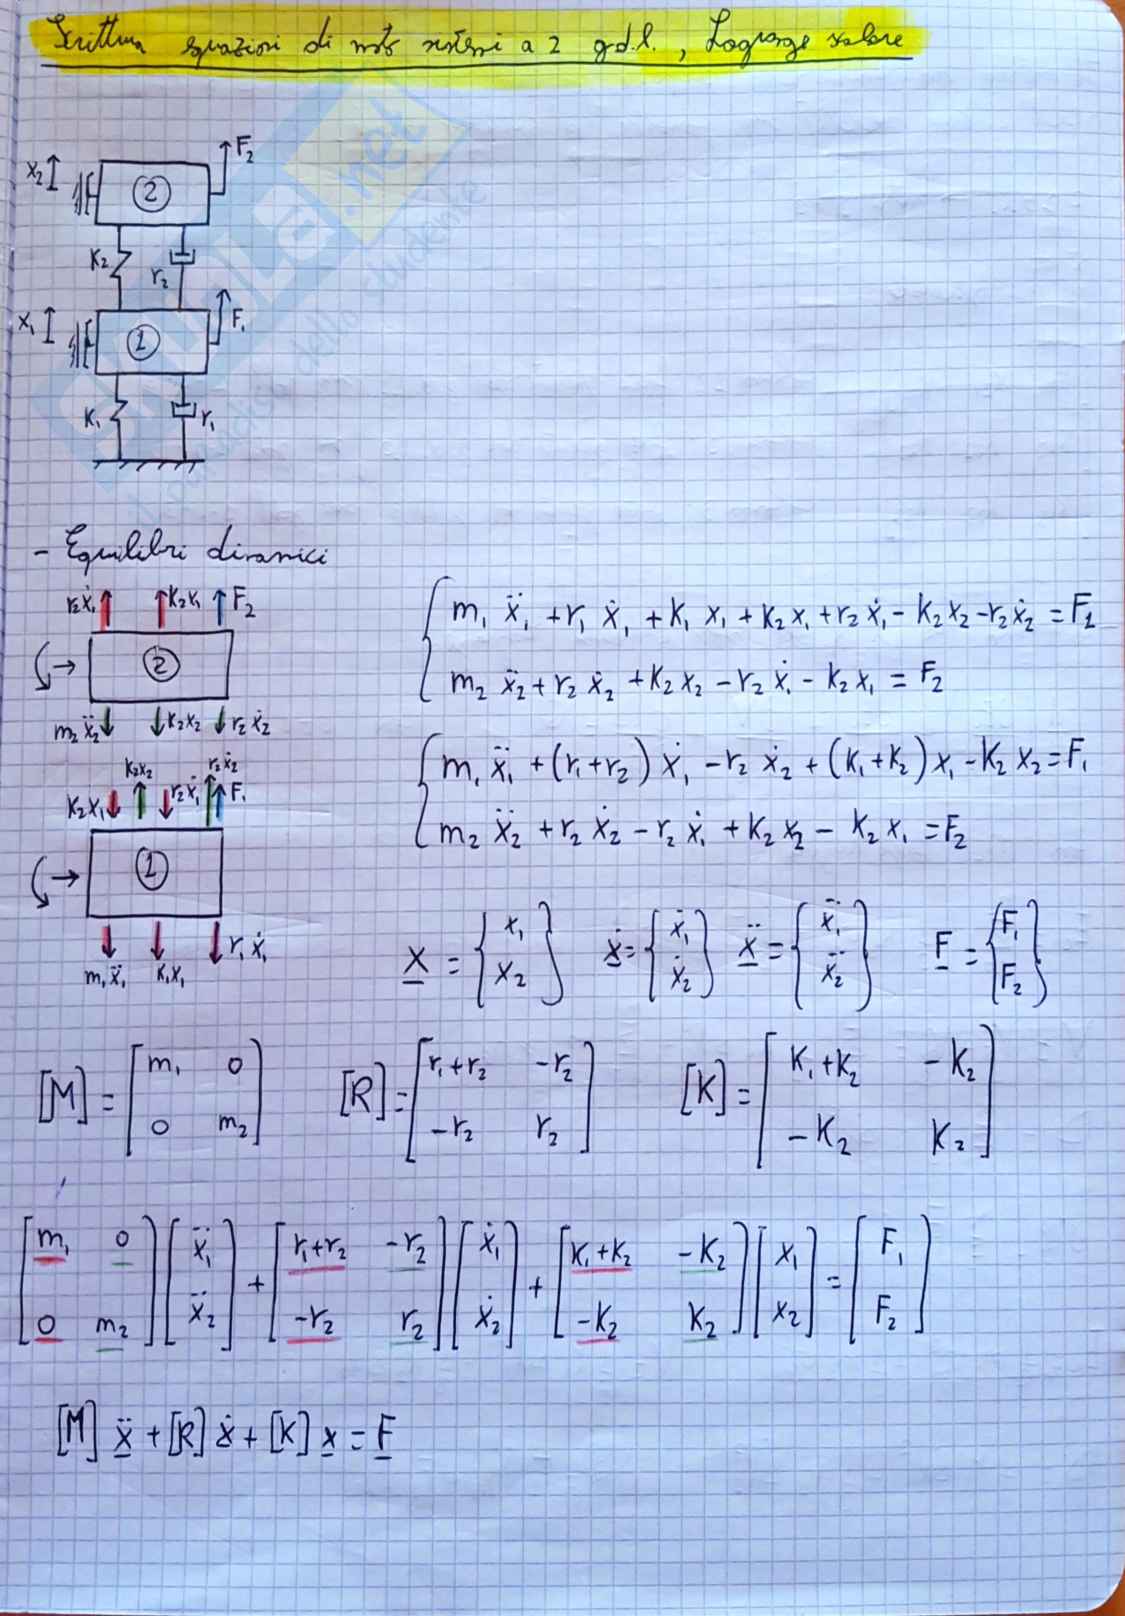 Scrittura equazioni di moto sistemi a 2 g.d.l., Lagrange scalare
x₂ ② F₂
k₂ r₂
x₁ ① F₁
k₁ r₁
- Equilibri dinamici
r₂ẋ₁ k₂x₁ F₂
②
m₂ẍ₂ k₂x₂ r₂ẋ₂
k₂x₁ k₂x₂ r₂ẋ₁ r₂ẋ₂ F₁
①
m₁ẍ₁ k₁x₁ r₁ẋ₁
{ m₁ẍ₁ + r₁ẋ₁ + k₁x₁ + k₂x₁ + r₂ẋ₁ - k₂x₂ - r₂ẋ₂ = F₁
m₂ẍ₂ + r₂ẋ₂ + k₂x₂ - r₂ẋ₁ - k₂x₁ = F₂
{ m₁ẍ₁ + (r₁+r₂)ẋ₁ - r₂ẋ₂ + (k₁+k₂)x₁ - k₂x₂ = F₁
m₂ẍ₂ + r₂ẋ₂ - r₂ẋ₁ + k₂x₂ - k₂x₁ = F₂
x = {x₁ x₂} ẋ = {ẋ₁ ẋ₂} ẍ = {ẍ₁ ẍ₂} F = {F₁ F₂}
[M] = [m₁ 0; 0 m₂] [R] = [r₁+r₂ -r₂; -r₂ r₂] [K] = [k₁+k₂ -k₂; -k₂ k₂]
[m₁ 0; 0 m₂][ẍ₁; ẍ₂] + [r₁+r₂ -r₂; -r₂ r₂][ẋ₁; ẋ₂] + [k₁+k₂ -k₂; -k₂ k₂][x₁; x₂] = [F₁; F₂]
[M]ẍ + [R]ẋ + [K]x = F
SKUOLA.net
dello studente